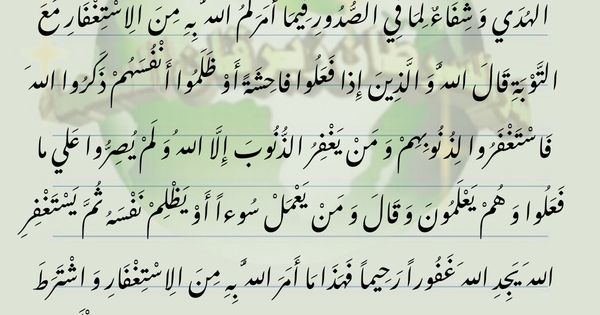 الْهُدَي وَ شِفَاءٌ لِمَا فِي الصُّدُورِ فِيمَا أَمَرَكُمُ اللَّهُ بِهِ مِنَ الِاسْتِغْفَارِ مَعَ
التَّوْبَةِ قَالَ اللَّهُ وَ الَّذِينَ إِذَا فَعَلُوا فَاحِشَةً أَوْ ظَلَمُوا أَنْفُسَهُمْ ذَكَرُوا اللَّهَ
فَاسْتَغْفَرُوا لِذُنُوبِهِمْ وَ مَنْ يَغْفِرُ الذُّنُوبَ إِلَّا اللَّهُ وَ لَمْ يُصِرُّوا عَلَي مَا
فَعَلُوا وَ هُمْ يَعْلَمُونَ وَ قَالَ وَ مَنْ يَعْمَلْ سُوءاً أَوْ يَظْلِمْ نَفْسَهُ ثُمَّ يَسْتَغْفِرِ
اللَّهَ يَجِدِ اللَّهَ غَفُوراً رَحِيماً فَهَذَا مَا أَمَرَ اللَّهُ بِهِ مِنَ الِاسْتِغْفَارِ وَ اشْتَرَطَ